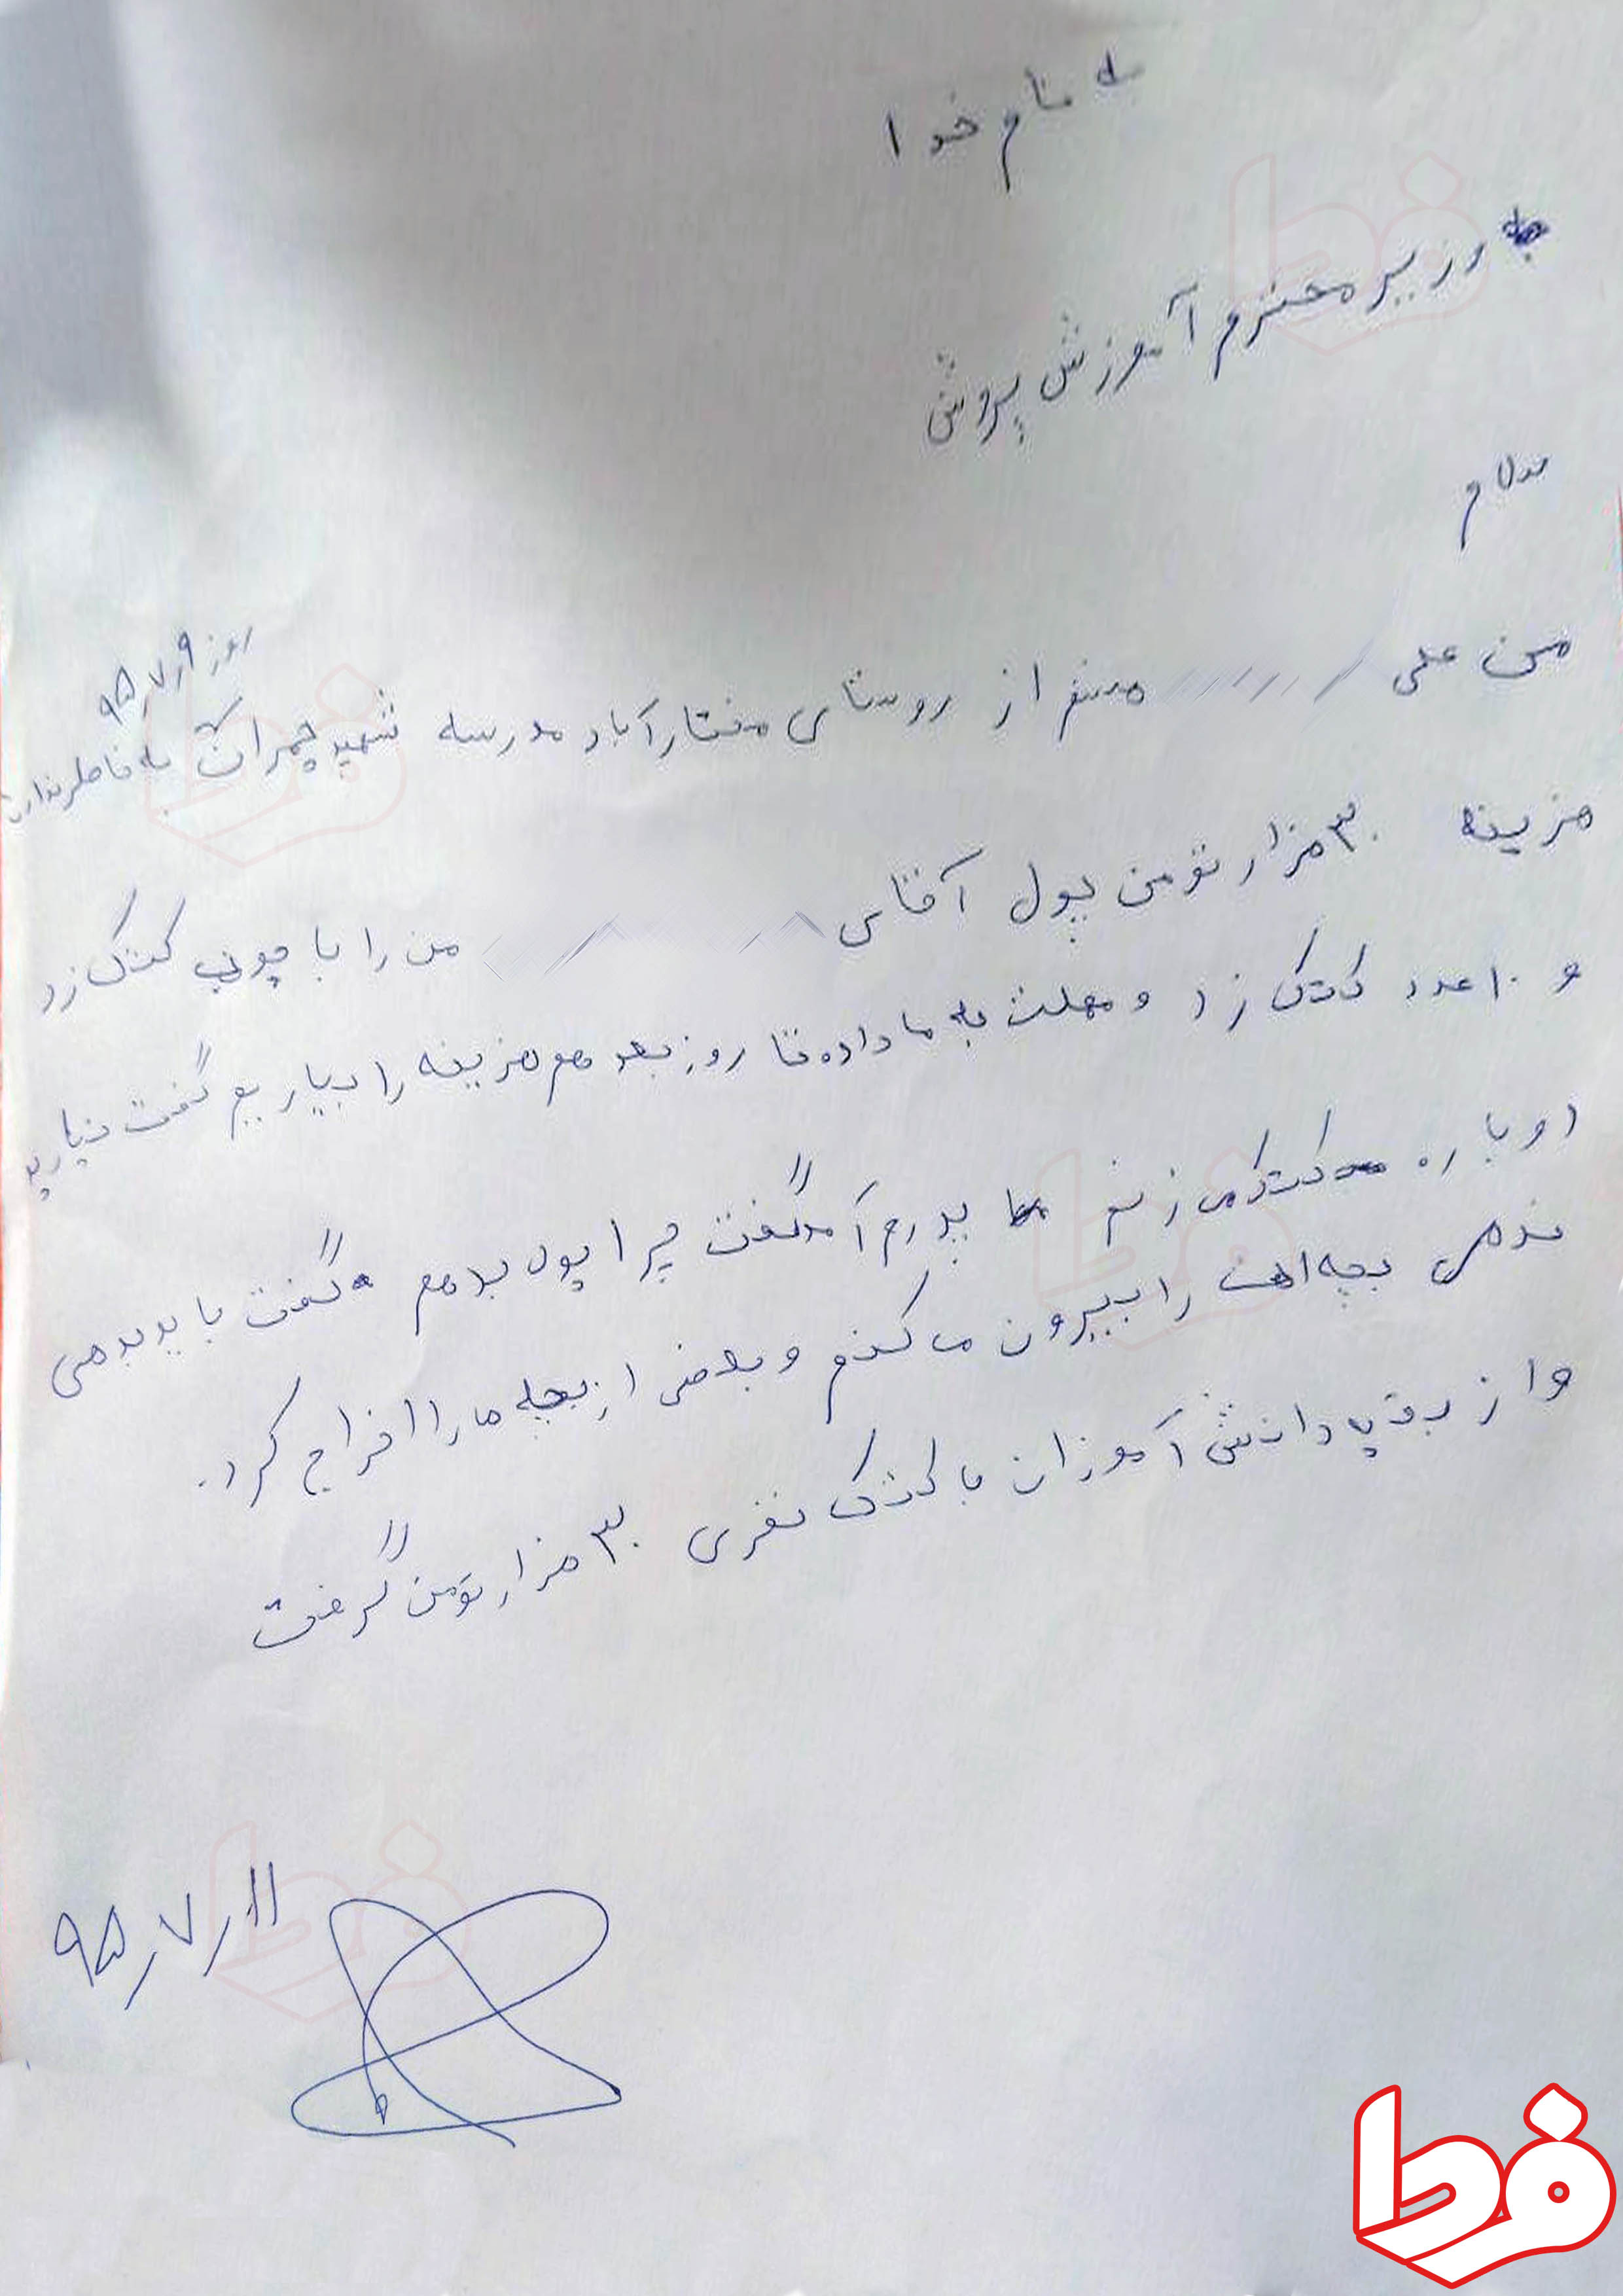 به نام خدا
به وزیر محترم آموزش پرورش
سلام
روز ۹ر۷ر۹۵
من علی هستم از روستای مختارآباد مدرسه شهید چمران به خاطر نداری
هزینه ۳۰ هزار تومن پول آقای من را با چوب کتک زد
و ۱۰ عدد کتک زد و مهلت به ما داده تا روز بعد هم هزینه را بیاریم گفت نیارید
دوباره کتک می زنم پدرم آمد گفت چرا پول بدهم گفت باید بدهی
ندهی بچه ات را بیرون می کنم و بعضی از بچه ها را اخراج کرد.
و از بقیه دانش آموزان با کتک نفری ۳۰ هزار تومن گرفت
۱۱ر۷ر۹۵
فردا